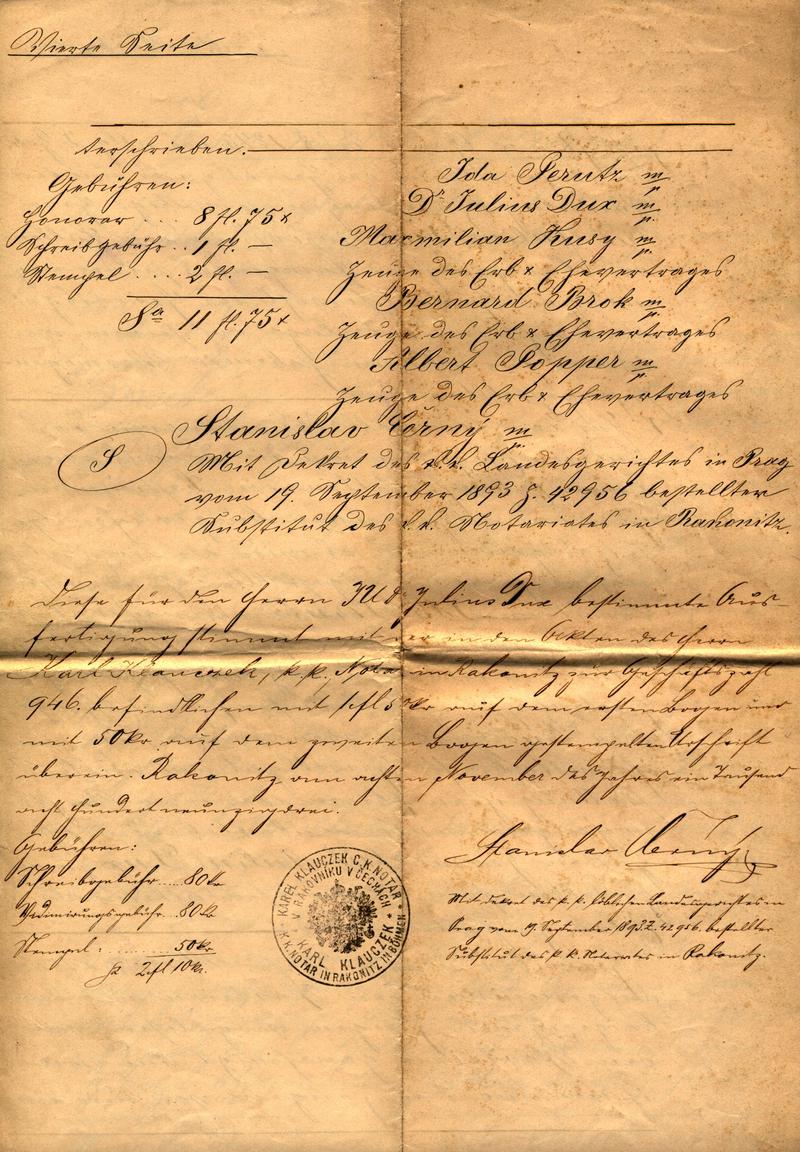 Vierte Seite
terschrieben.
Gebühren:
Honorar .... 8 fl. 75 x
Schreibgebühr .. 1 fl. —
Stempel ..... 2 fl. —
Sa 11 fl. 75 x
Ida Perutz m/p.
Dr Julius Dux m/p.
Maxmilian Kusy m/p.
Zeuge des Erb & Ehevertrages
Bernard Brok m/p.
Zeuge des Erb & Ehevertrages
Albert Popper m/p.
Zeuge des Erb & Ehevertrages
Stanislav Černý m/p.
S
Mit Dekret des k.k. Landesgerichtes in Prag
vom 19. September 1893 Z. 42956 bestellter
Substitut des k.k. Notariates in Rakonitz.
Diese für den Herrn JUDr Julius Dux bestimmte Aus-
fertigung stimmt mit der in den Akten des Herrn
Karl Klauczek, k.k. Notar in Rakonitz zur Geschäftszahl
946. befindlichen mit 1 fl 50 kr auf dem ersten Bogen und
mit 50 kr auf dem zweiten Bogen gestempelten Urschrift
überein. Rakonitz am achten November des Jahres ein Tausend
acht hundert neunzigdrei.
Gebühren:
Schreibgebühr ..... 80 kr
Vidimirungsgebühr .. 80 kr
Stempel: ........... 50 kr
Sa 2 fl 10 kr.
Stanislav Černý
Mit Dekret des k.k. Landesgerichtes in
Prag vom 19. September 1893 Z. 42956. bestellter
Substitut des k.k. Notariates in Rakonitz.
KAREL KLAUCZEK C.K. NOTÁŘ
V RAKOVNÍKU V ČECHÁCH
KARL KLAUCZEK
K.K. NOTAR IN RAKONITZ IN BÖHMEN